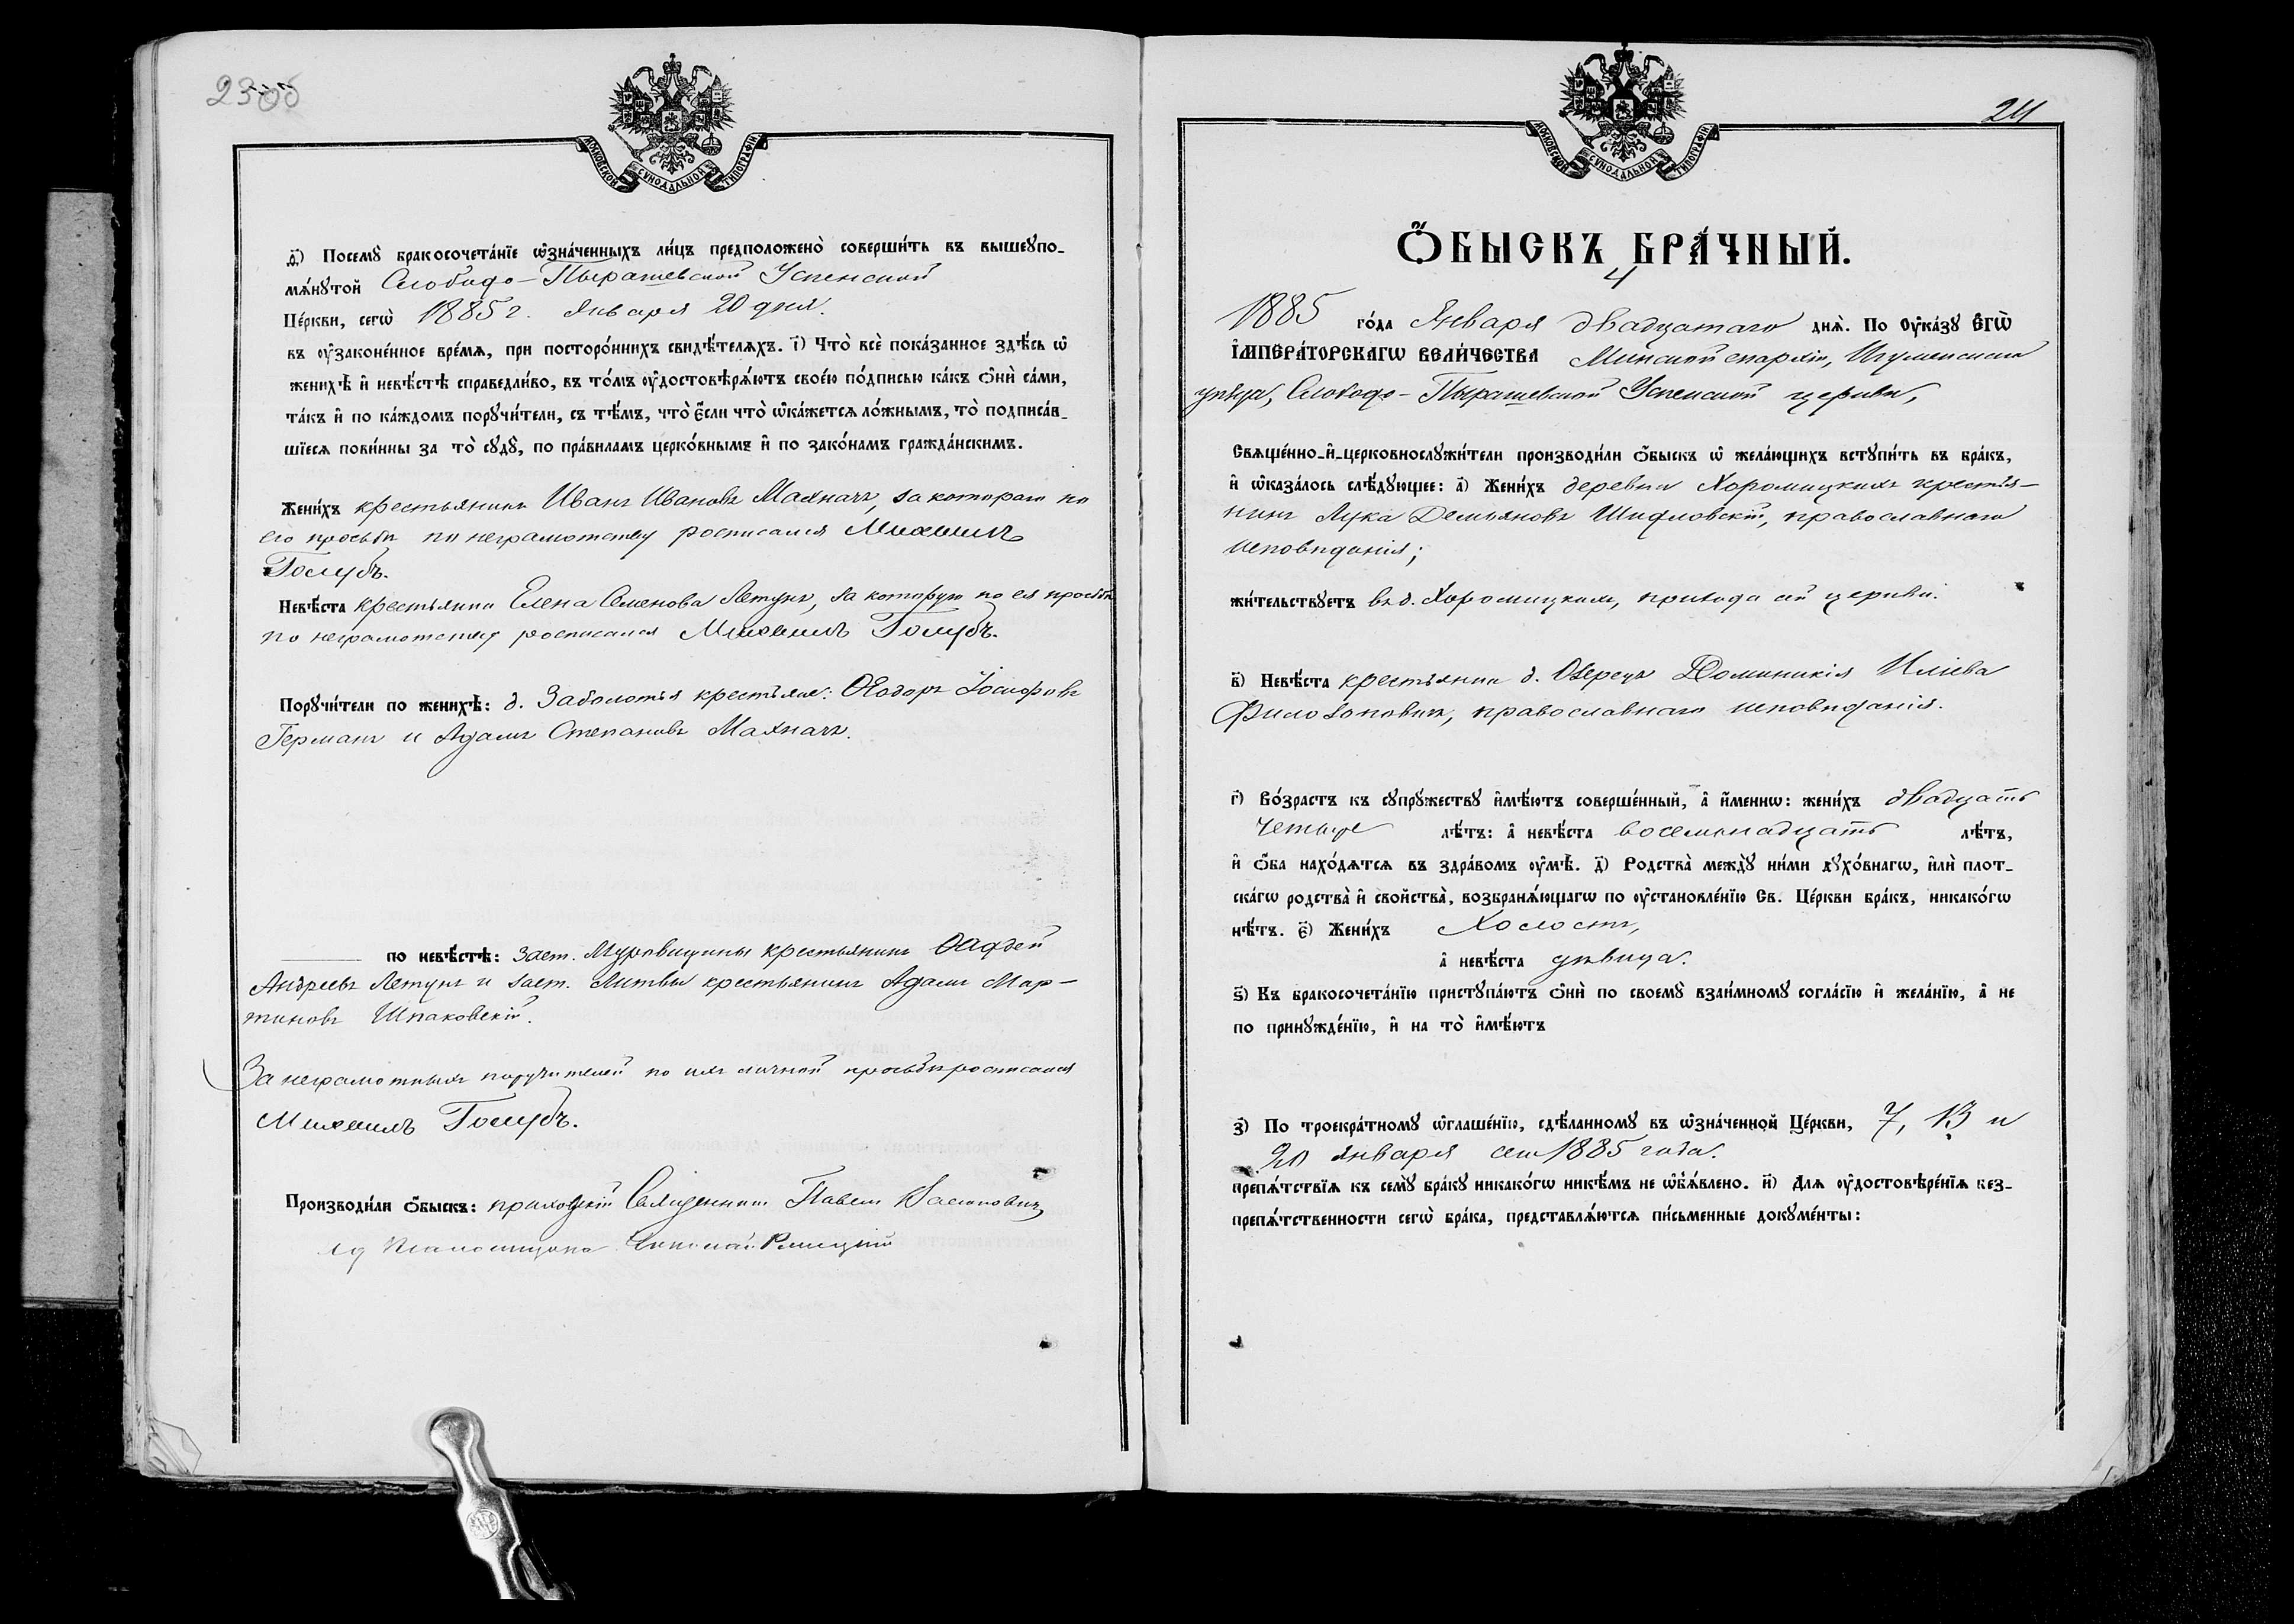 23об
МОСКОВСКОЙ СѴНОДАЛЬНОЙ ТИПОГРАФІИ
д҃) Посемꙋ̀ бракосочета́нїе ѡ҆зна́ченныхъ ли́цъ предположено̀ соверши́ть въ вышеꙋпо-
мѧ́нꙋтой Слободо-Пырашевской Успенской
Це́ркви, сегѡ̀ 1885 г. Января 20 дня.
въ ᲂу҆законе́нное вре́мѧ, при посторо́ннихъ свидѣ́телѧхъ. і҃) Что̀ всѐ пока́занное здѣ́сь ѡ҆
женихѣ̀ и҆ невѣ́стѣ справедли́во, въ то́мъ ᲂу҆достовѣрѧ́ютъ свое́ю по́дписью ка́къ ѻ҆нѝ са́ми,
та́къ и҆ по ка́ждомъ порꙋчи́тели, съ тѣ́мъ, что̀ є҆́сли что̀ ѡ҆ка́жетсѧ ло́жнымъ, то̀ подписа́в-
шїесѧ пови́нны за то̀ сꙋдꙋ̀, по пра́виламъ церко́внымъ и҆ по зако́намъ гражда́нскимъ.
Жени́хъ крестьянинъ Иванъ Ивановъ Махначъ, за котораго по
его просьбѣ по неграмотству росписался Михаилъ
Голубъ.
Невѣ́ста крестьянка Елена Семенова Летунъ, за которую по ея просьбѣ
по неграмотству росписался Михаилъ Голубъ.
Порꙋчи́тели по женихѣ̀: д. Заболотья крестьяне: Ѳеодоръ Іосифовъ
Германъ и Адамъ Степановъ Махначъ.
по невѣ́стѣ: заст. Муравищины крестьянинъ Ѳаддей
Андреевъ Летунъ и заст. Литвы крестьянинъ Адамъ Мар-
тиновъ Шпаковскій.
За неграмотныхъ поручителей по ихъ личной просьбѣ росписался
Михаилъ Голубъ.
Производи́ли ѻ҆́быскъ: приходскій Священникъ Павелъ
24
МОСКОВСКОЙ СѴНОДАЛЬНОЙ ТИПОГРАФІИ
Ѻ҆́БЫСКЪ БРА́ЧНЫЙ.
4
1885 го́да Января двадцатаго днѧ̀. По ᲂу҆ка́зꙋ Є҆ГѠ̀
І҆МПЕРА́ТОРСКАГѠ ВЕЛИ́ЧЕСТВА Минской епархіи, Игуменскаго
уѣзда, Слободо-Пырашевской Успенской церкви,
Свѧще́нно-и҆-церковнослꙋжи́тели производи́ли ѻ҆́быскъ ѡ҆ жела́ющихъ встꙋпи́ть въ бра́къ,
и҆ ѡ҆каза́лось слѣ́дꙋющее: а҃) Жени́хъ деревни Хоромицкихъ крестья-
нинъ Лука Демьяновъ Шидловскій, православнаго
исповѣданія;
жи́тельствꙋетъ въ д. Хоромицкихъ, прихода сей церкви.
в҃) Невѣ́ста крестьянка д. Озерецъ Доминикія Иліева
Филозоповичъ, православнаго исповѣданія.
г҃) Во́зрастъ къ сꙋпрꙋ́жествꙋ и҆мѣ́ютъ соверше́нный, а҆ и҆́меннѡ: жени́хъ двадцать
четыре лѣ́тъ: а҆ невѣ́ста восемнадцать лѣ́тъ,
и҆ ѻ҆́ба нахо́дѧтсѧ въ здра́вомъ ᲂу҆мѣ̀. д҃) Родства̀ междꙋ̀ ни́ми дꙋхо́внагѡ, и҆лѝ плот-
ска́гѡ родства̀ и҆ свойства̀, возбранѧ́ющагѡ по ᲂу҆становле́нїю Св. Це́ркви бра́къ, никако́гѡ
нѣ́тъ. є҃) Жени́хъ Холостъ,
а҆ невѣ́ста дѣвица.
ѕ҃) Къ бракосочета́нїю пристꙋпа́ютъ ѻ҆нѝ по своемꙋ̀ взаи́мномꙋ согла́сїю и҆ жела́нїю, а҆ не
по принꙋжде́нїю, и҆ на то̀ и҆мѣ́ютъ
з҃) По троекра́тномꙋ ѡ҆глаше́нїю, сдѣ́ланномꙋ въ ѡ҆зна́ченной Це́ркви, 7, 13 и
20 Января сего 1885 года.
препѧ́тствїѧ къ семꙋ̀ бра́кꙋ никако́гѡ никѣ́мъ не ѡ҆б̾ѧ́влено. и҃) Длѧ ᲂу҆достовѣре́нїѧ без-
препѧ́тственности сегѡ̀ бра́ка, представлѧ́ютсѧ пи́сьменные докꙋме́нты: